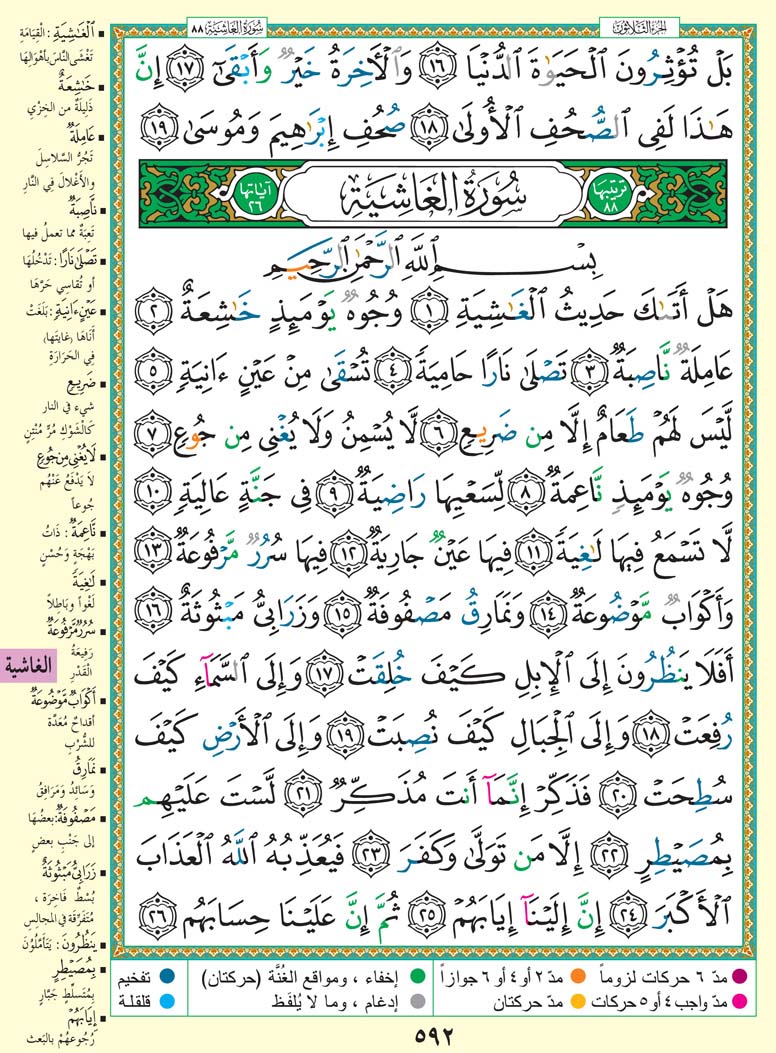 سُورَةُ الغَاشِيَة ٨٨
الجزء الثلاثون
بَلْ تُؤْثِرُونَ ٱلْحَيَوٰةَ ٱلدُّنْيَا ١٦ وَٱلْأَخِرَةُ خَيْرٌ وَأَبْقَىٰٓ ١٧ إِنَّ
هَـٰذَا لَفِى ٱلصُّحُفِ ٱلْأُولَىٰ ١٨ صُحُفِ إِبْرَٰهِيمَ وَمُوسَىٰ ١٩
ترتيبها ٨٨ سُورَةُ الغَاشِيَةِ آياتها ٢٦
بِسْمِ ٱللَّهِ ٱلرَّحْمَٰنِ ٱلرَّحِيمِ
هَلْ أَتَىٰكَ حَدِيثُ ٱلْغَٰشِيَةِ ١ وُجُوهٌ يَوْمَئِذٍ خَٰشِعَةٌ ٢
عَامِلَةٌ نَّاصِبَةٌ ٣ تَصْلَىٰ نَارًا حَامِيَةً ٤ تُسْقَىٰ مِنْ عَيْنٍ ءَانِيَةٍ ٥
لَّيْسَ لَهُمْ طَعَامٌ إِلَّا مِن ضَرِيعٍ ٦ لَّا يُسْمِنُ وَلَا يُغْنِى مِن جُوعٍ ٧
وُجُوهٌ يَوْمَئِذٍ نَّاعِمَةٌ ٨ لِّسَعْيِهَا رَاضِيَةٌ ٩ فِى جَنَّةٍ عَالِيَةٍ ١٠
لَّا تَسْمَعُ فِيهَا لَٰغِيَةً ١١ فِيهَا عَيْنٌ جَارِيَةٌ ١٢ فِيهَا سُرُرٌ مَّرْفُوعَةٌ ١٣
وَأَكْوَابٌ مَّوْضُوعَةٌ ١٤ وَنَمَارِقُ مَصْفُوفَةٌ ١٥ وَزَرَابِىُّ مَبْثُوثَةٌ ١٦
أَفَلَا يَنظُرُونَ إِلَى ٱلْإِبِلِ كَيْفَ خُلِقَتْ ١٧ وَإِلَى ٱلسَّمَآءِ كَيْفَ
رُفِعَتْ ١٨ وَإِلَى ٱلْجِبَالِ كَيْفَ نُصِبَتْ ١٩ وَإِلَى ٱلْأَرْضِ كَيْفَ
سُطِحَتْ ٢٠ فَذَكِّرْ إِنَّمَآ أَنتَ مُذَكِّرٌ ٢١ لَّسْتَ عَلَيْهِم
بِمُصَيْطِرٍ ٢٢ إِلَّا مَن تَوَلَّىٰ وَكَفَرَ ٢٣ فَيُعَذِّبُهُ ٱللَّهُ ٱلْعَذَابَ
ٱلْأَكْبَرَ ٢٤ إِنَّ إِلَيْنَآ إِيَابَهُمْ ٢٥ ثُمَّ إِنَّ عَلَيْنَا حِسَابَهُم ٢٦
■ الْغَٰشِيَةِ: القِيَامَةِ
تَغْشَى النَّاسَ بِأهْوَالِهَا
■ خَٰشِعَةٌ
ذَلِيلَةٌ من الخِزْيِ
■ عَامِلَةٌ
تَجُرُّ السَّلاسِلَ
والأَغْلالَ فِي النَّارِ
■ نَّاصِبَةٌ
تَعِبَةٌ مما تعملُ فيها
■ تَصْلَىٰ نَارًا: تَدْخُلُهَا
أو تُقاسِي حَرَّهَا
■ عَيْنٍ ءَانِيَةٍ: بَلَغَتْ
أنَاهَا (غَايتَها)
فِي الحَرَارَةِ
■ ضَرِيعٍ
شيء في النار
كَالشَّوْكِ مُرٌّ مُنْتِنٍ
■ لَا يُغْنِى مِن جُوعٍ
لَا يَدْفَعُ عَنْهُم
جُوعاً
■ نَّاعِمَةٌ: ذَاتُ
بَهْجَةٍ وَحُسْنٍ
■ لَٰغِيَةً
لَغْواً وَبَاطِلاً
■ سُرُرٌ مَّرْفُوعَةٌ
رَفِيعَةُ
الْقَدْرِ
الغاشية
■ أَكْوَابٌ مَّوْضُوعَةٌ
أقداحٌ مُعَدَّة
للشُّرْبِ
■ نَمَارِقُ
وَسَائِدُ وَمَرَافِقُ
■ مَصْفُوفَةٌ: بعضُهَا
إلى جَنْبِ بعضٍ
■ زَرَابِىُّ مَبْثُوثَةٌ
بُسُطٌ فَاخِرَة،
مُتَفَرِّقة في المجالِسِ
■ يَنظُرُونَ: يَتَأمَّلُونَ
■ بِمُصَيْطِرٍ
بِمُتَسَلِّطٍ جَبَّارٍ
■ إِيَابَهُمْ
رُجُوعهُمْ بالبَعث
مدّ ٦ حركات لزوماً
مدّ ٢ أو ٤ أو ٦ جوازاً
إخفاء ، ومواقع الغُنَّة (حركتان)
تفخيم
مدّ واجب ٤ أو ٥ حركات
مدّ حركتان
إدغام ، وما لا يُلفَظ
قلقلة
٥٩٢